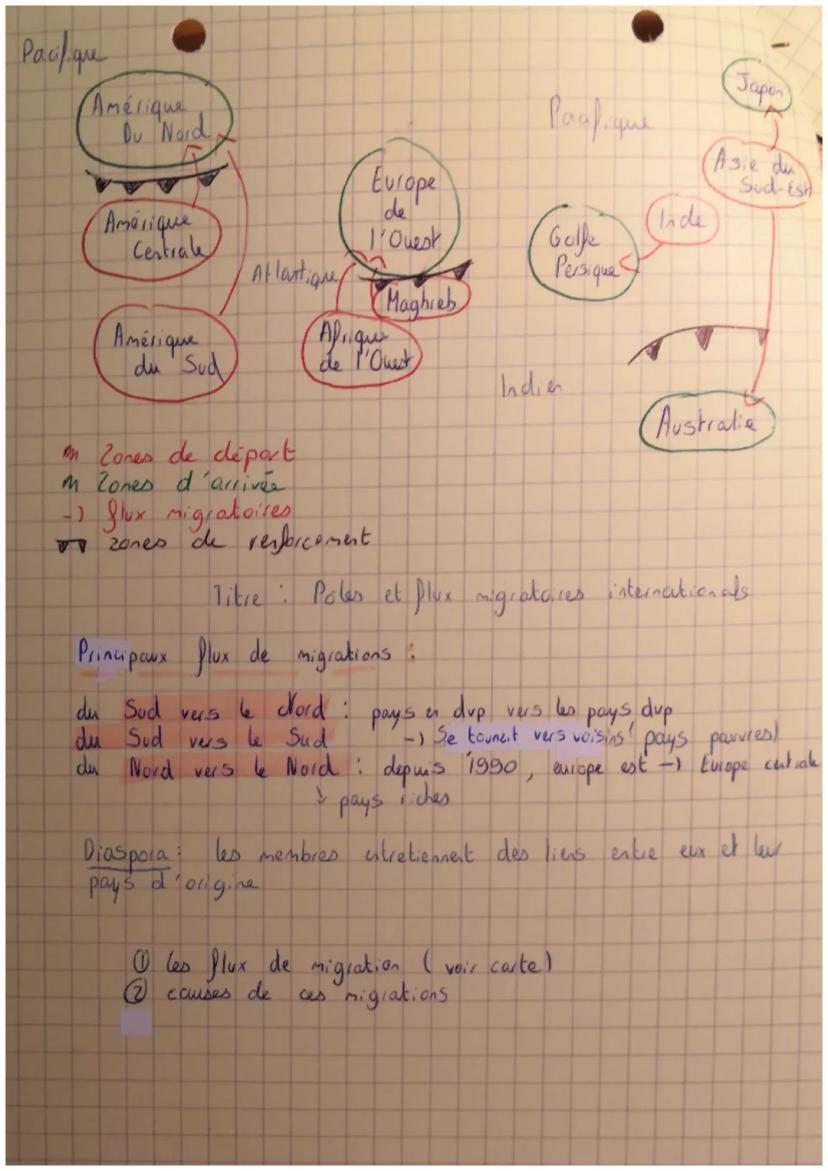 Pacifique
Amérique
Du Nord
Japon
Pacifique
Asie du
Sud-Est
Europe
de
l'Ouest
Inde
Amérique
Centrale
Golfe
Persique
Atlantique
Maghreb
Amérique
du Sud
Afrique
de l'Ouest
Indien
Australie
Zones de départ
Zones d'arrivée
-) flux migratoires
zones de renforcement
Titre : Poles et flux migratoires internationals
Principaux flux de migrations :
du Sud vers le Nord : pays en dvp vers les pays dvp
du Sud vers le Sud -) Se tournent vers voisins' pays pauvres)
du Nord vers le Nord : depuis 1990, europe est -) Europe centrale
↓ pays riches
Diaspora : les membres entretiennent des liens entre eux et leur
pays d'origine
① les flux de migration ( voir carte)
② causes de ces migrations